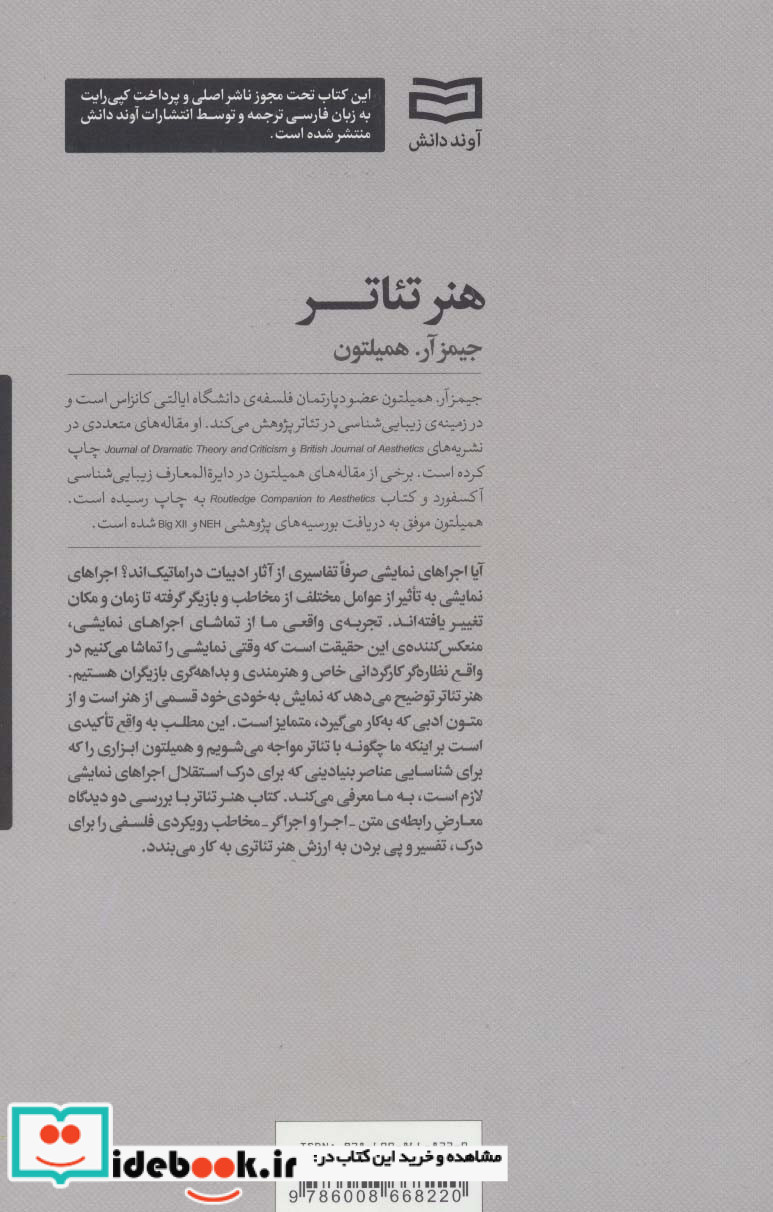 این کتاب تحت مجوز ناشر اصلی و پرداخت کپی‌رایت
به زبان فارسی ترجمه و توسط انتشارات آوند دانش
منتشر شده است.
آوند دانش
هنر تئاتر
جیمز آر. همیلتون
جیمز آر. همیلتون عضو دپارتمان فلسفه‌ی دانشگاه ایالتی کانزاس است و
در زمینه‌ی زیبایی‌شناسی در تئاتر پژوهش می‌کند. او مقاله‌های متعددی در
نشریه‌های British Journal of Aesthetics و Journal of Dramatic Theory and Criticism چاپ
کرده است. برخی از مقاله‌های همیلتون در دایرةالمعارف زیبایی‌شناسی
آکسفورد و کتاب Routledge Companion to Aesthetics به چاپ رسیده است.
همیلتون موفق به دریافت بورسیه‌های پژوهشی NEH و Big XII شده است.
آیا اجراهای نمایشی صرفاً تفاسیری از آثار ادبیات دراماتیک‌اند؟ اجراهای
نمایشی به تأثیر از عوامل مختلف از مخاطب و بازیگر گرفته تا زمان و مکان
تغییر یافته‌اند. تجربه‌ی واقعی ما از تماشای اجراهای نمایشی،
منعکس‌کننده‌ی این حقیقت است که وقتی نمایشی را تماشا می‌کنیم در
واقع نظاره‌گر کارگردانی خاص و هنرمندی و بداهه‌گری بازیگران هستیم.
هنر تئاتر توضیح می‌دهد که نمایش به‌خودی‌خود قسمی از هنر است و از
متون ادبی که به‌کار می‌گیرد، متمایز است. این مطلب به واقع تأکیدی
است بر اینکه ما چگونه با تئاتر مواجه می‌شویم و همیلتون ابزاری را که
برای شناسایی عناصر بنیادینی که برای درک استقلال اجراهای نمایشی
لازم است، به ما معرفی می‌کند. کتاب هنر تئاتر با بررسی دو دیدگاه
معارضِ رابطه‌ی متن ـ اجرا و اجراگر ـ مخاطب رویکردی فلسفی را برای
درک، تفسیر و پی بردن به ارزش هنر تئاتری به کار می‌بندد.
مشاهده و خرید این کتاب در:
idebook.ir
9 786008 668220